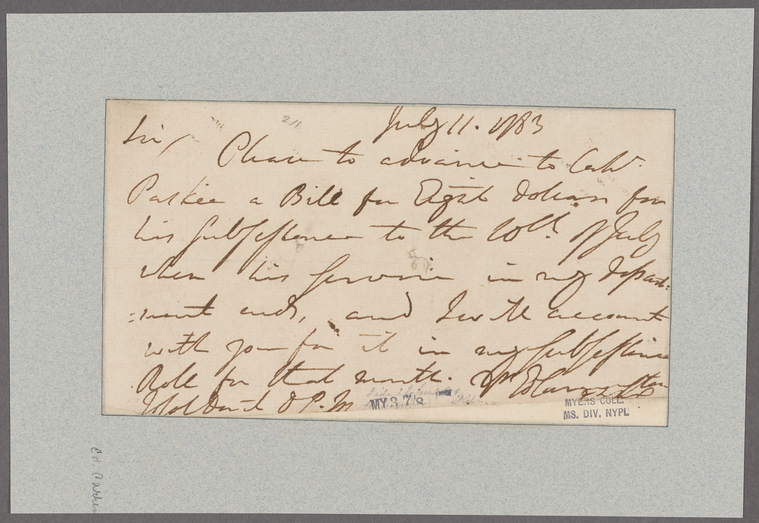 July 11. 1783
Sir
Please to advance to Cap.t
Parker a Bill for Eight dollars for
his Subsistance to the 20th. of July
when his service in my depart-
=ment ends, and I will account
with you for it in my Subsistance
Roll for that month. Ed Carrington
MY 3 78
MYERS COLL.
MS. DIV. NYPL